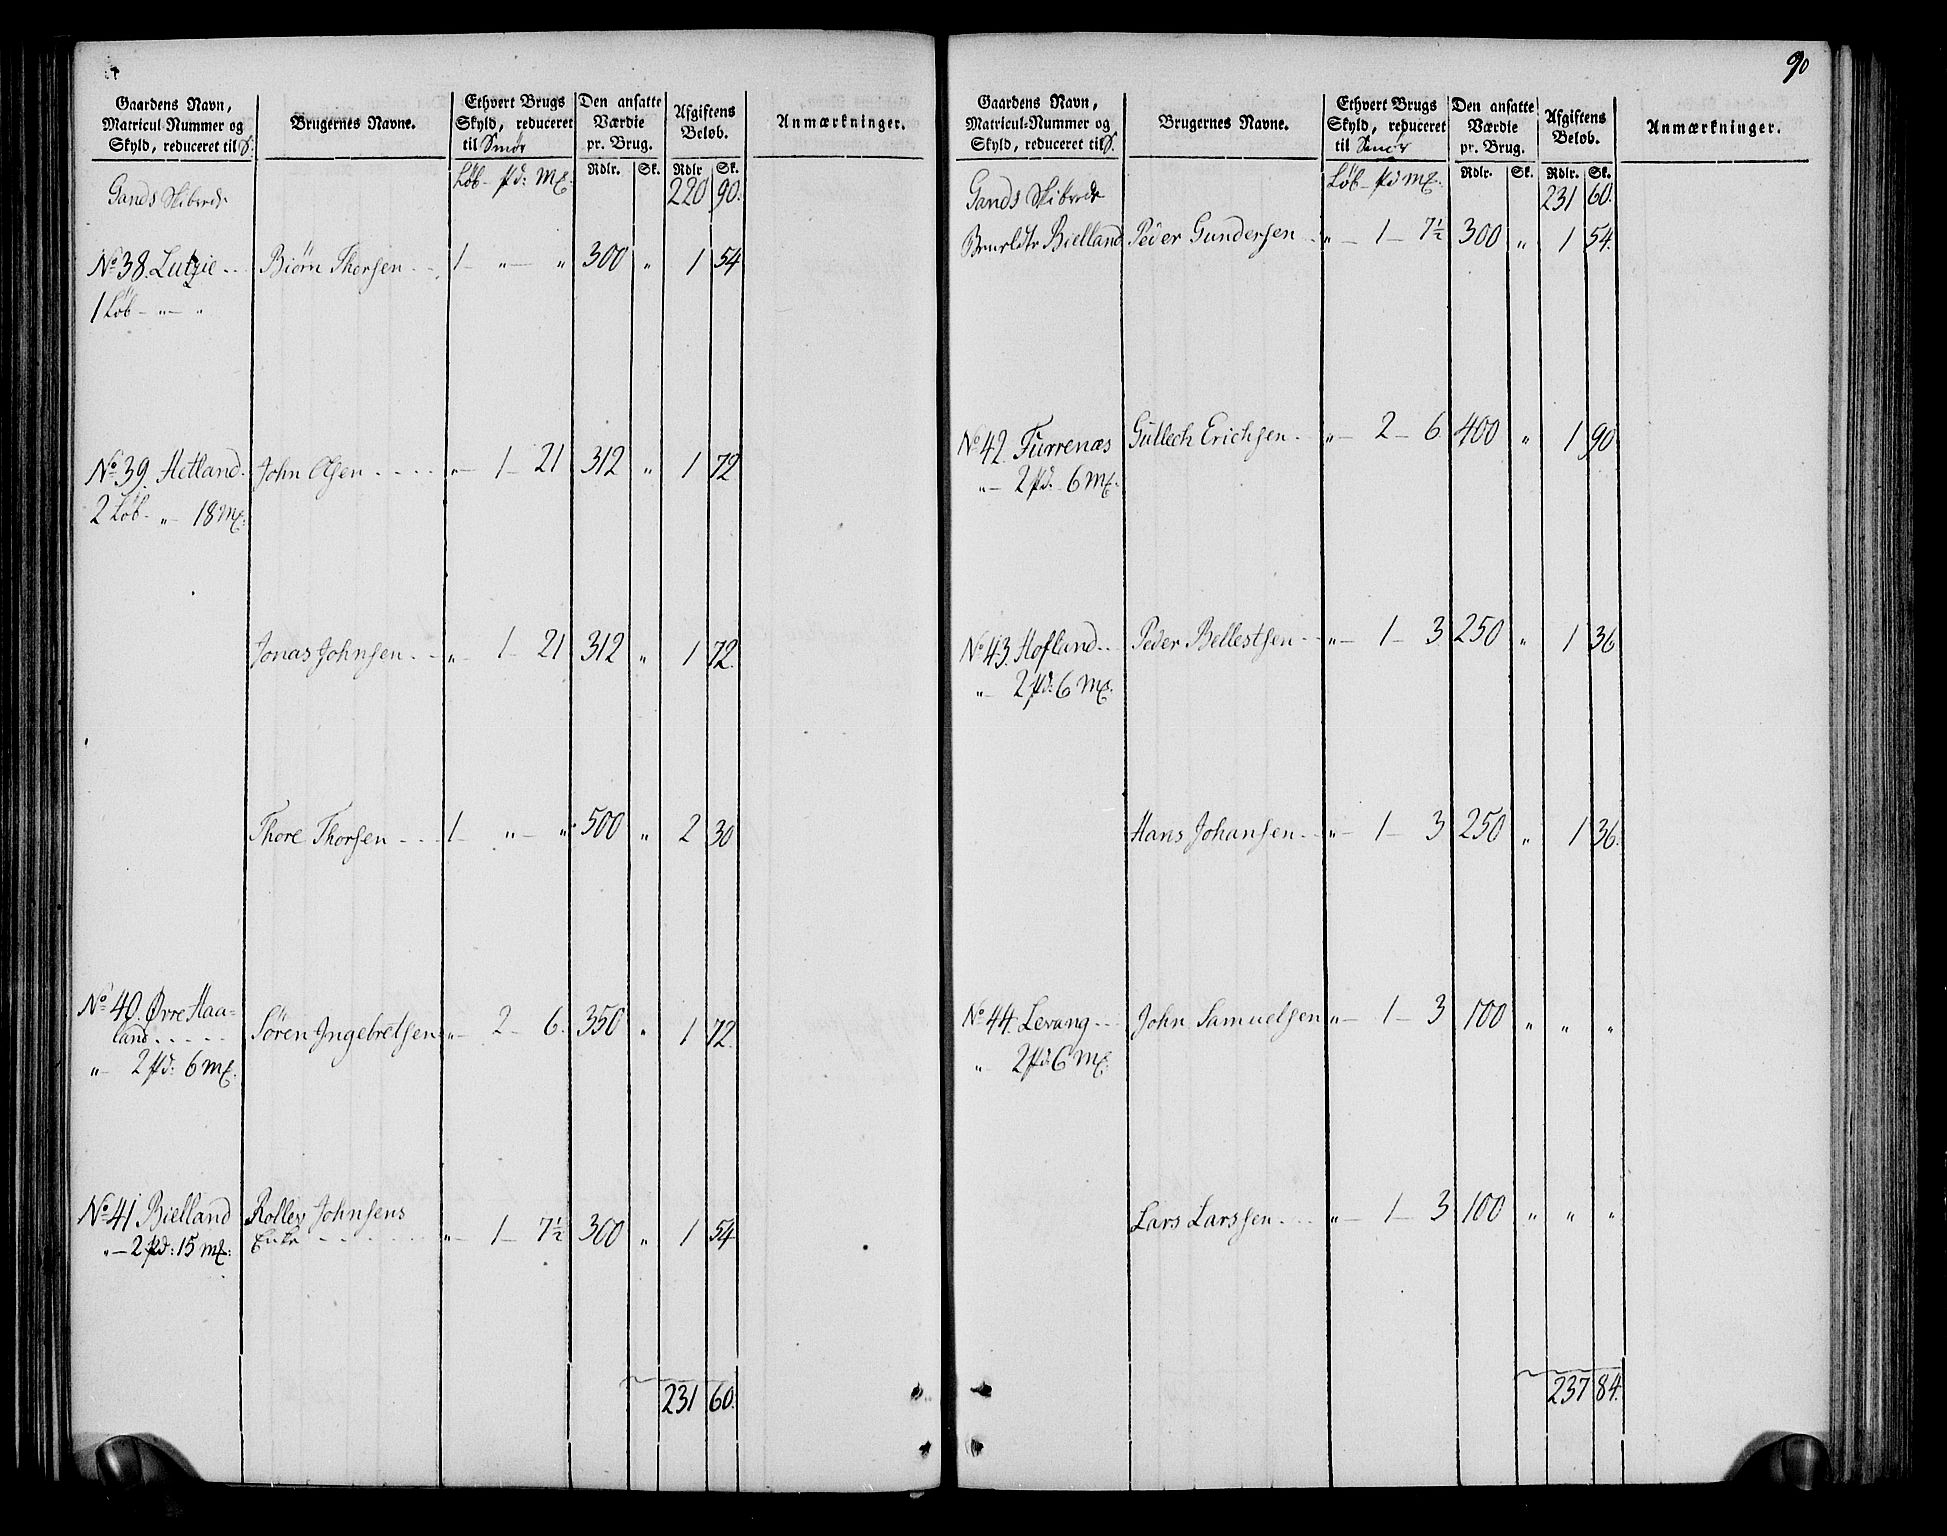 90
Gaardens Navn, Matricul-Nummer og Skyld, reduceret til S. | Brugernes Navne. | Ethvert Brugs Skyld, reduceret til Smör | Den ansatte Værdie pr. Brug. | Afgiftens Beløb. | Anmærkninger.
Rdlr. Sk. Rdlr Sk.
Gands Skibrede Löb - pd: Mk: 220 90.
No 38. Lutsie Biörn Thorsen 1 - " - " 300 " 1 54
1 Löb - " - "
No 39. Hetland John Olsen " - 1 - 21 312 " 1 72
2 Löb - " - 18 Mk:
Jonas Johnsen " - 1 - 21 312 " 1 72
Thore Thorsen 1 - " - " 500 " 2 30
No 40. Øvre Haa-
land Sören Ingebretsen " - 2 - 6. 350 " 1 72.
" - 2 pd: 6 Mk.
No 41 Bielland Rollev Johnsens
" - 2 pd: 15 Mk: Enke " - 1 - 7½ 300 " 1 54
231 60.
Gaardens Navn, Matricul-Nummer og Skyld, reduceret til S. | Brugernes Navne. | Ethvert Brugs Skyld, reduceret til Smör | Den ansatte Værdie pr. Brug. | Afgiftens Beløb. | Anmærkninger.
Rdlr. Sk. Rdlr. Sk.
Gands Skibrede Löb - pd Mk: 231 60.
Bielland Peder Gundersen " - 1 - 7½ 300 " 1 54.
No 42. Furrenæs Gullech Erichsen " - 2 - 6 400 " 1 90
" - 2 pd. 6 Mk.
No 43. Hofland Peder Bellestsen " - 1 - 3 250 " 1 36
" - 2 pd: 6 Mk.
Hans Johansen " - 1 - 3 250 " 1 36.
No 44. Levang John Samuelsen " - 1 - 3 100 " " "
" 2 pd: 6 Mk.
Lars Larssen " - 1 - 3 100 " " "
237 84.